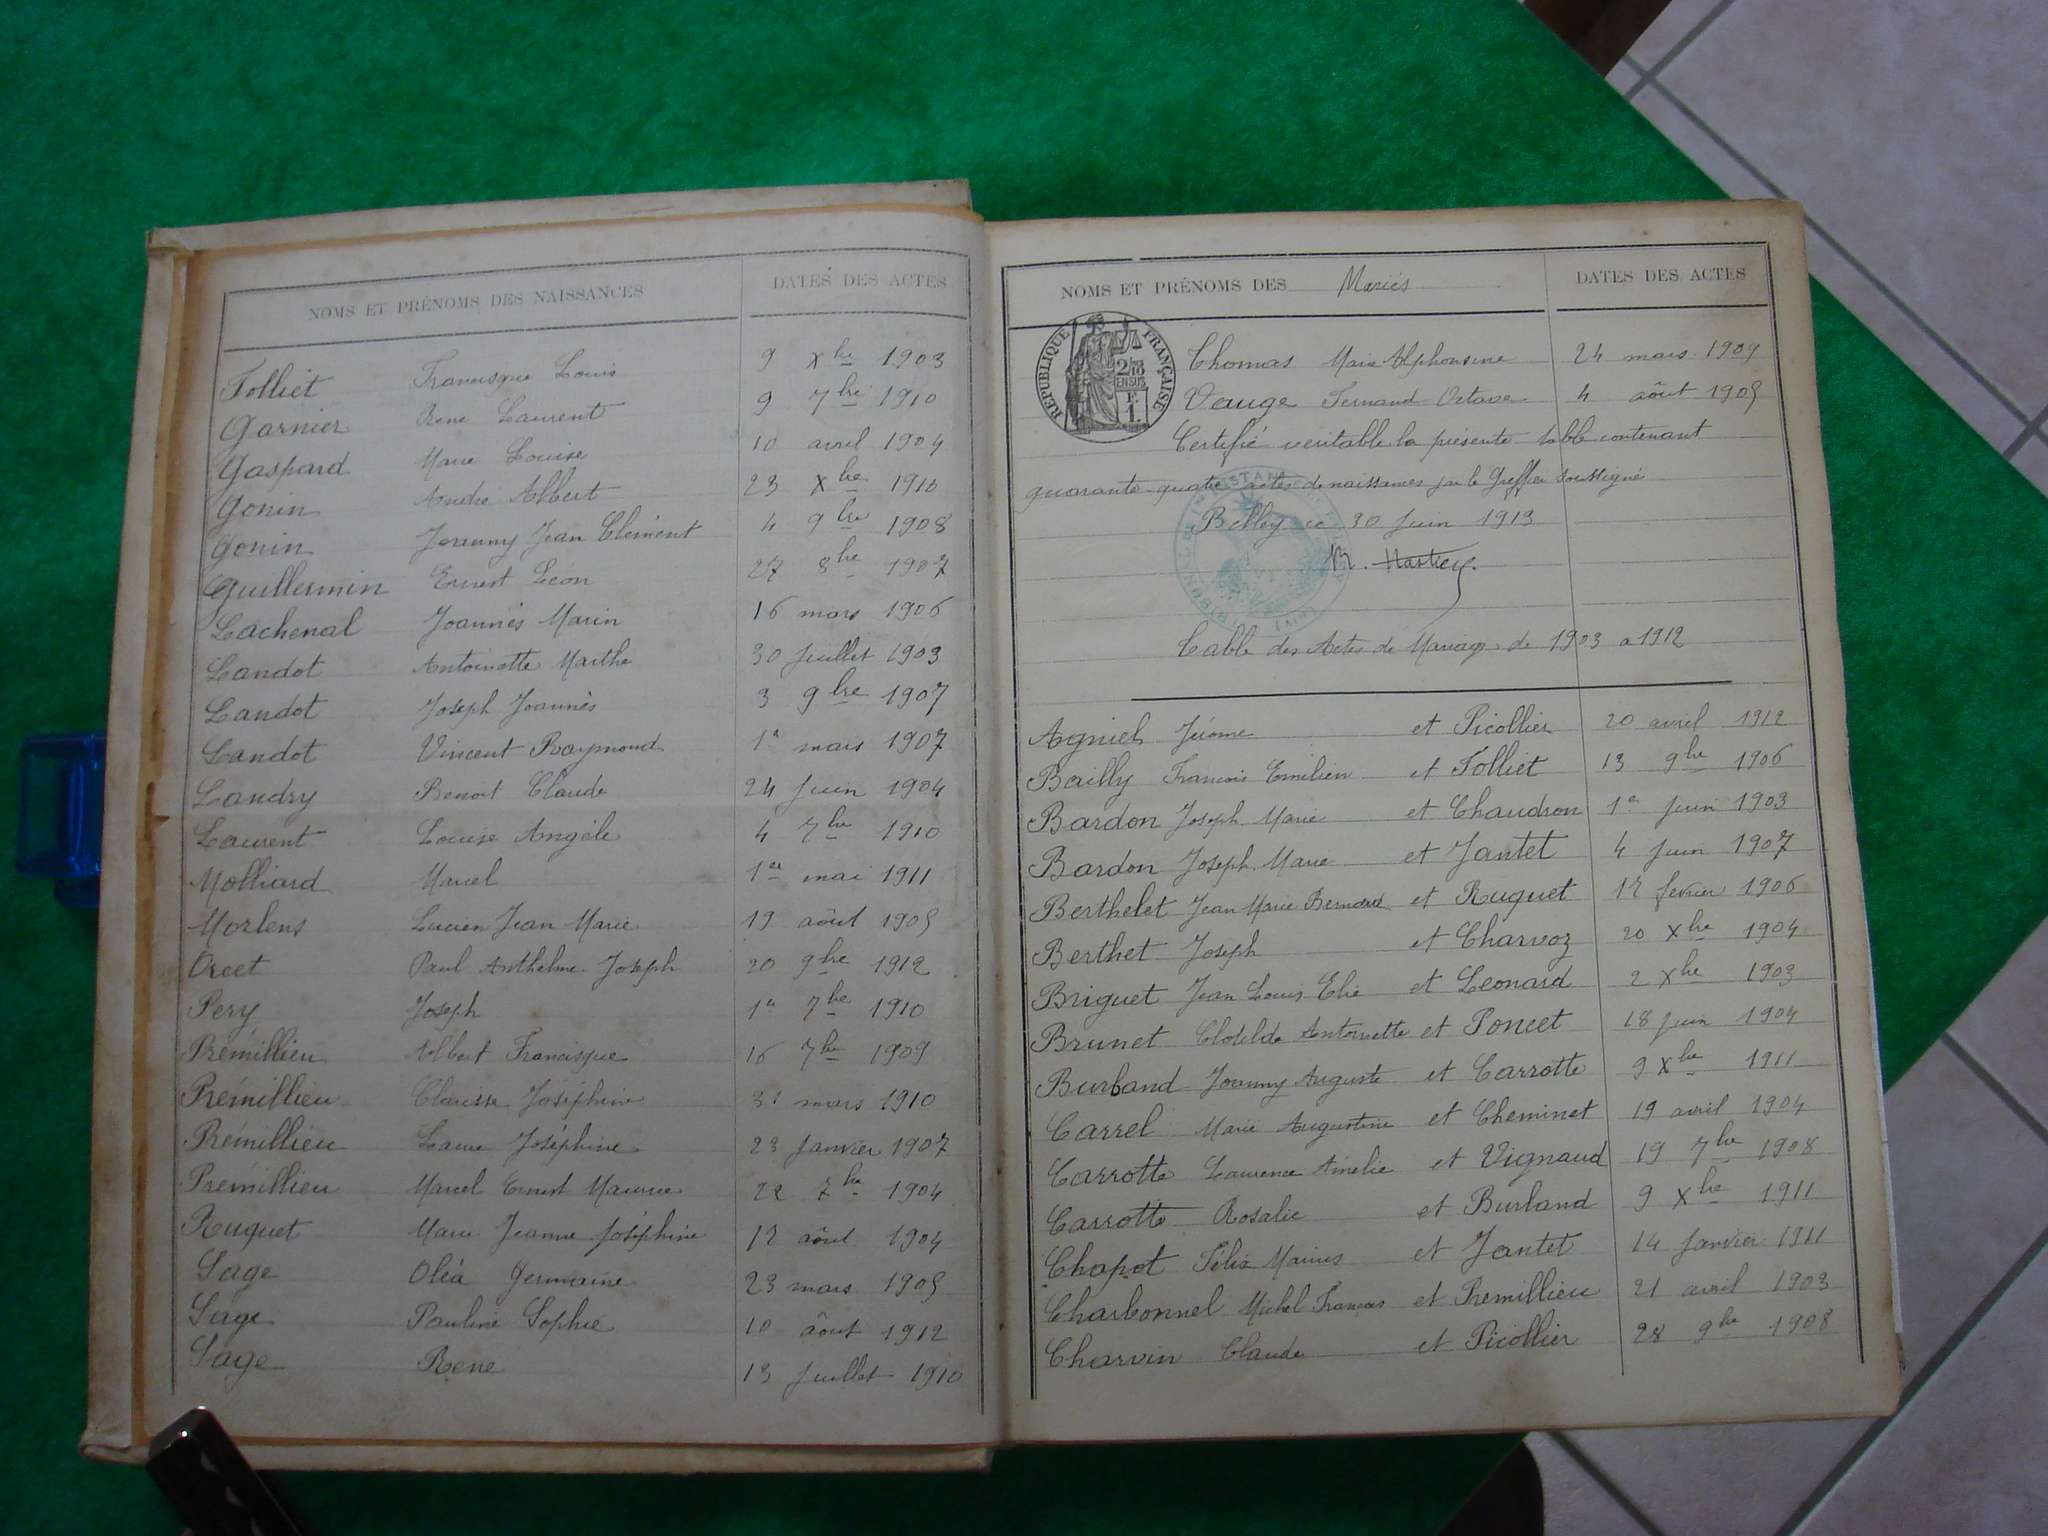 NOMS ET PRÉNOMS DES NAISSANCES DATES DES ACTES
Folliet Francisque Louis 9 Xbre 1903
Garnier Rene Laurent 9 7bre 1910
Gaspard Marie Louise 10 avril 1904
Gonin Andre Albert 23 Xbre 1910
Gonin Joanny Jean Clément 4 9bre 1908
Guillermin Ernest Léon 27 8bre 1907
Lachenal Joannès Marin 16 mars 1906
Landot Antoinette Marthe 30 Juillet 1903
Landot Joseph Joannès 3 9bre 1907
Landot Vincent Raymond 1er mars 1907
Landry Benoit Claude 24 Juin 1904
Laurent Louise Angèle 4 7bre 1910
Molliard Marcel 1er mai 1911
Morlens Lucien Jean Marie 19 aôut 1905
Orcet Paul Anthelme Joseph 20 9bre 1912
Pery Joseph 1er 7bre 1910
Prémillieu Albert Francisque 16 7bre 1909
Prémillieu Clarisse Joséphine 31 mars 1910
Prémillieu Laure Joséphine 23 Janvier 1907
Prémillieu Marcel Ernest Maurice 22 7bre 1904
Ruguet Marie Jeanne Joséphine 12 aôut 1904
Sage Oléa Germaine 23 mars 1905
Sage Pauline Sophie 10 âout 1912
Sage Rene 13 Juillet 1910
NOMS ET PRÉNOMS DES Mariés DATES DES ACTES
REPUBLIQUE FRANÇAISE
2/10 EN SUS
Thomas Marie Alphonsine 24 mars 1909
Vauge Fernand Octave 4 aôut 1905
Certifié veritable la présente table contenant
quarante-quatre actes de naissances par le Greffier soussigné
Belley ce 30 Juin 1913
Table des Actes de Mariage de 1903 a 1912
Agniel Jérome et Picollier 20 avril 1912
Bailly Francois Emilien et Folliet 13 9bre 1906
Bardon Joseph Marie et Chaudron 1er Juin 1903
Bardon Joseph Marie et Jantet 4 Juin 1907
Berthelet Jean Marie Bernard et Ruguet 17 fevrier 1906
Berthet Joseph et Charvoz 20 Xbre 1904
Briguet Jean Louis Elie et Leonard 2 Xbre 1903
Brunet Clotilde Antoinette et Poncet 18 Juin 1904
Burland Joanny Auguste et Carrotte 9 Xbre 1911
Carrel Marie Augustine et Cheminet 19 avril 1904
Carrotte Laurence Amelie et Vignaud 19 7bre 1908
Carrotte Rosalie et Burland 9 Xbre 1911
Chapot Félix Marius et Jantet 14 Janvier 1911
Charbonnel Michel Francois et Premillieu 21 avril 1903
Charvin Claude et Picollier 28 9bre 1908